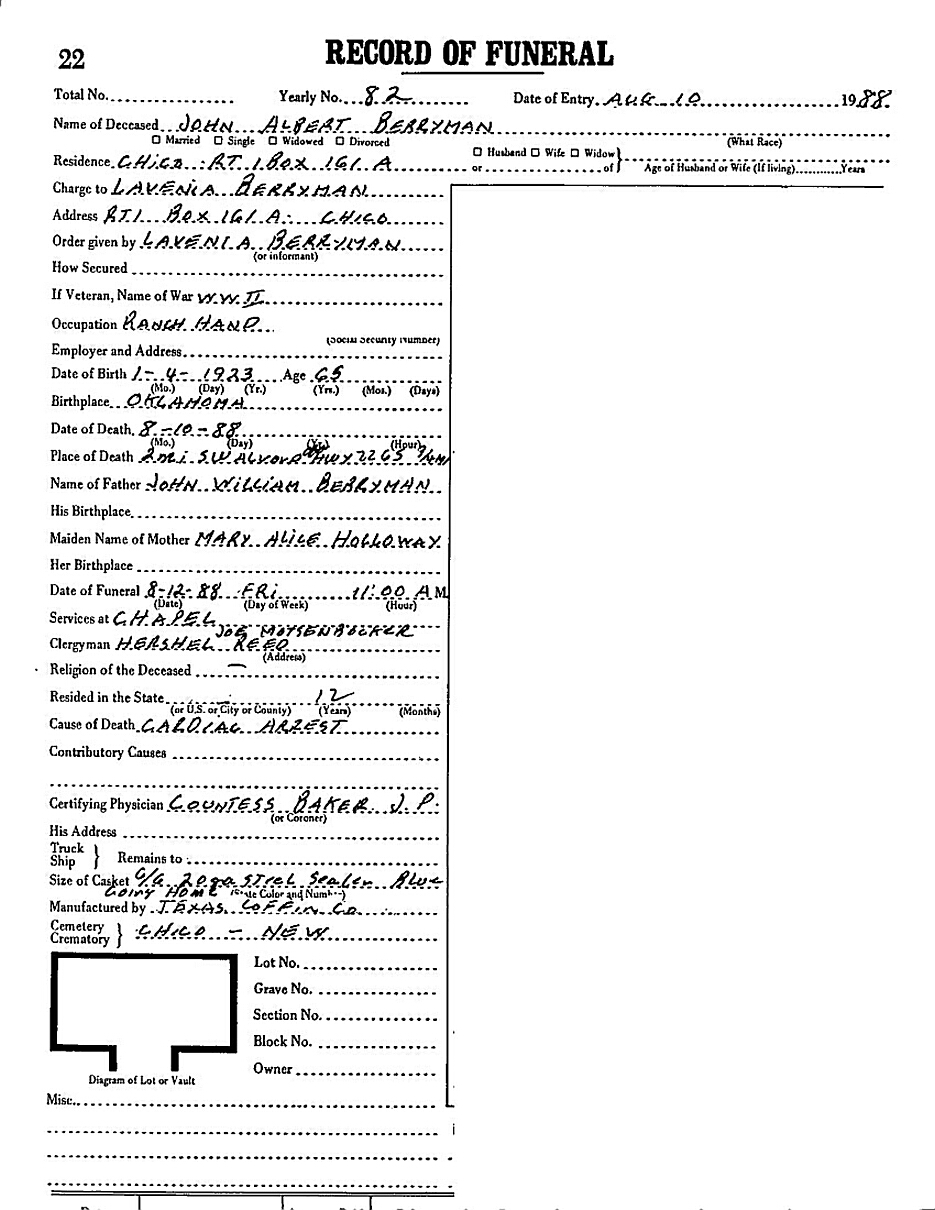 22
RECORD OF FUNERAL
Total No. Yearly No. 82 Date of Entry AUG 10 1988
Name of Deceased JOHN ALBERT BERRYMAN
☐ Married ☐ Single ☐ Widowed ☐ Divorced (What Race)
Residence CHICO: RT. 1 BOX 161 A ☐ Husband ☐ Wife ☐ Widow }
or of Age of Husband or Wife (If living) Years
Charge to LAVENIA BERRYMAN
Address RT1 BOX 161 A: CHICO
Order given by LAVENIA BERRYMAN
(or informant)
How Secured
If Veteran, Name of War W.W. II
Occupation RANCH HAND
(Social Security Number)
Employer and Address
Date of Birth 1-4-1923 Age 65
(Mo.) (Day) (Yr.) (Yrs.) (Mos.) (Days)
Birthplace OKLAHOMA
Date of Death 8-10-88
(Mo.) (Day) (Yr.) (Hour)
Place of Death 2 mi. S.W. Alvord HWY 2265
Name of Father JOHN WILLIAM BERRYMAN
His Birthplace
Maiden Name of Mother MARY ALICE HOLLOWAY
Her Birthplace
Date of Funeral 8-12-88 FRI 11:00 A M.
(Date) (Day of Week) (Hour)
Services at CHAPEL
JOE MOTSENBOCKER
Clergyman HERSHEL REED
(Address)
Religion of the Deceased —
Resided in the State - 12
(or U.S. or City or County) (Years) (Months)
Cause of Death CARDIAC ARREST
Contributory Causes
Certifying Physician COUNTESS BAKER J.P.
(or Coroner)
His Address
Truck
Ship } Remains to
Size of Casket 6/6 20 ga STEEL Sealer Blue
Going HOME (State Color and Number)
Manufactured by TEXAS COFFIN CO.
Cemetery
Crematory } CHICO - NEW
Lot No.
Grave No.
Section No.
Block No.
Owner
Diagram of Lot or Vault
Misc.